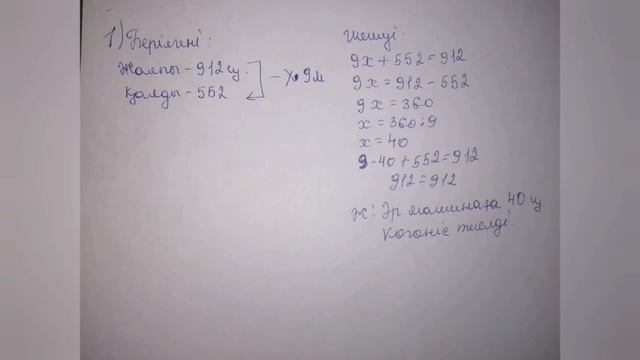 1) Берілгені:
Жалпы - 912 ц
Қалды - 552
- х 9м
Шешуі:
9х + 552 = 912
9х = 912 - 552
9х = 360
х = 360 : 9
х = 40
9 · 40 + 552 = 912
912 = 912
Ж: Әр машинаға 40 ц
көкөніс тиелді.